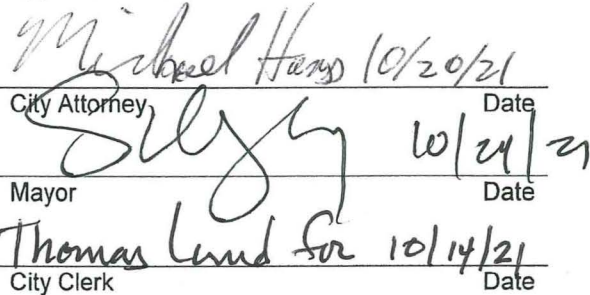 Michael Haas 10/20/21
City Attorney Date
10/24/21
Mayor Date
Thomas Lund for 10/14/21
City Clerk Date